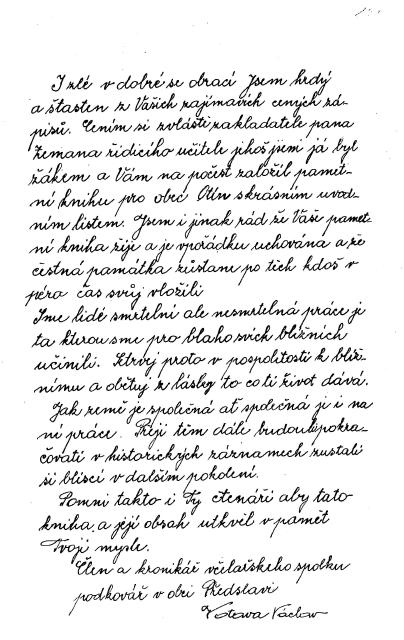 I zlé v dobré se obrací Jsem hrdý
a šťasten z Vašich zajímavích cených zá-
pisů. Cením si zvlášti zakladatele pana
Zemana řídicího učitele jehož jsem já byl
žákem a Vám na počest založil pamět-
ní knihu pro obec Otín skrásním úvod-
ním listem. Jsem i jinak rád že Vaše pamět-
ní kniha žije a je vpořádku uchována a že
čestná památka zůstane po těch kdož v
péro čas svůj vložili
Sme lidé smrtelní ale nesmrtelná práce je
ta kterou sme pro blaho svích bližních
učinili. Setrvej proto v pospolitosti k bliž-
nímu a obětuj z lásky to co ti život dává.
Jak země je společná ať společná je i na
ní práce. Přeji těm dále budou pokra-
čovati v historických záznamech zustali
si blízcí v dalším pokolení.
Pomni takto i Ty čtenáři aby tato
kniha a její obsah utkvěl v pamět
Tvojí mysle.
Člen a kronikář včelařského spolku
podkovář v obci Předslavi
Votava Václav